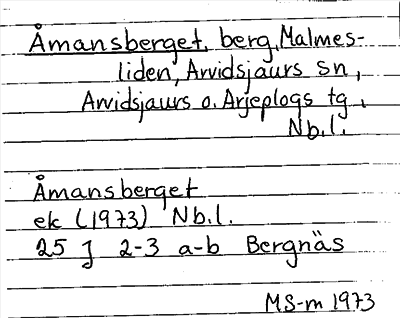 Åmansberget, berg, Malmes-
liden, Arvidsjaurs sn,
Arvidsjaurs o. Arjeplogs tg,
Nb.l.
Åmansberget
ek (1973) Nb.l.
25 J 2-3 a-b Bergnäs
MS-m 1973